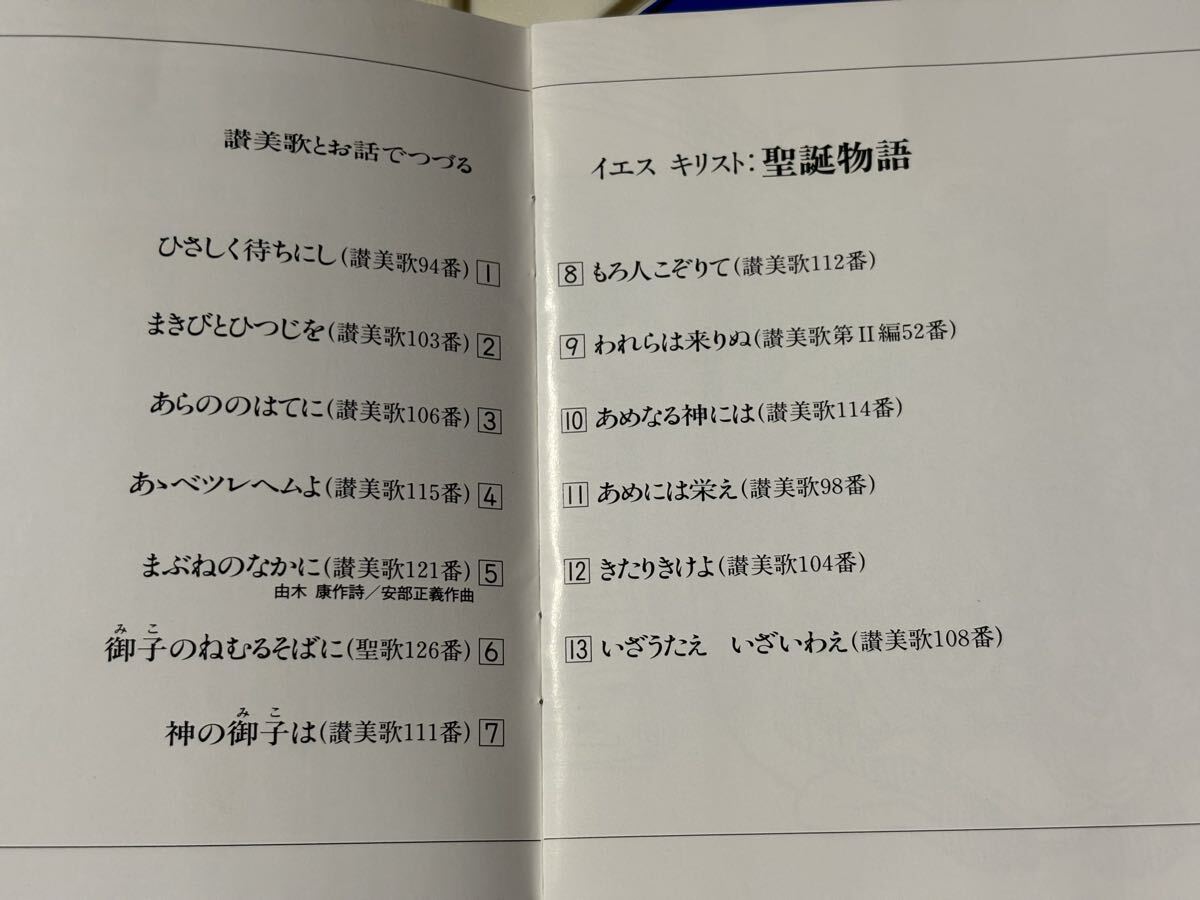 讃美歌とお話でつづる
ひさしく待ちにし(讃美歌94番) 1
まきびとひつじを(讃美歌103番) 2
あらののはてに(讃美歌106番) 3
あゝベツレヘムよ(讃美歌115番) 4
まぶねのなかに(讃美歌121番) 5
由木 康作詩／安部正義作曲
みこ
御子のねむるそばに(聖歌126番) 6
みこ
神の御子は(讃美歌111番) 7
イエス キリスト：聖誕物語
8 もろ人こぞりて(讃美歌112番)
9 われらは来りぬ(讃美歌第Ⅱ編52番)
10 あめなる神には(讃美歌114番)
11 あめには栄え(讃美歌98番)
12 きたりきけよ(讃美歌104番)
13 いざうたえ　いざいわえ(讃美歌108番)